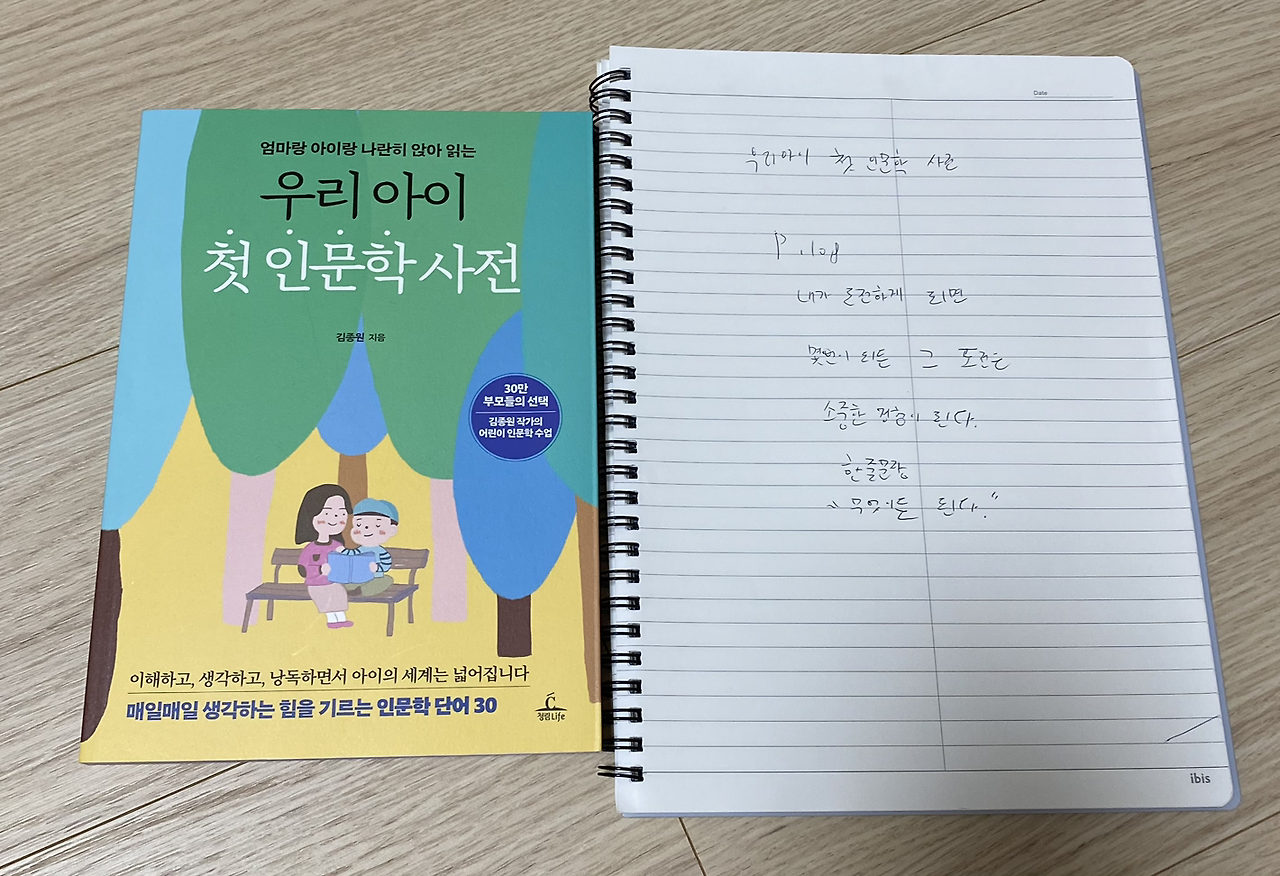 엄마랑 아이랑 나란히 앉아 읽는
우리 아이
첫 인문학 사전
김종원 지음
30만
부모들의 선택
김종원 작가의
어린이 인문학 수업
이해하고, 생각하고, 낭독하면서 아이의 세계는 넓어집니다
매일매일 생각하는 힘을 기르는 인문학 단어 30
청림Life
Date
우리아이 첫 인문학 사전
P
내가 도전하게 되면
몇번이 되든 그 도전은
소중한 경험이 된다.
"무엇이든 된다."
ibis